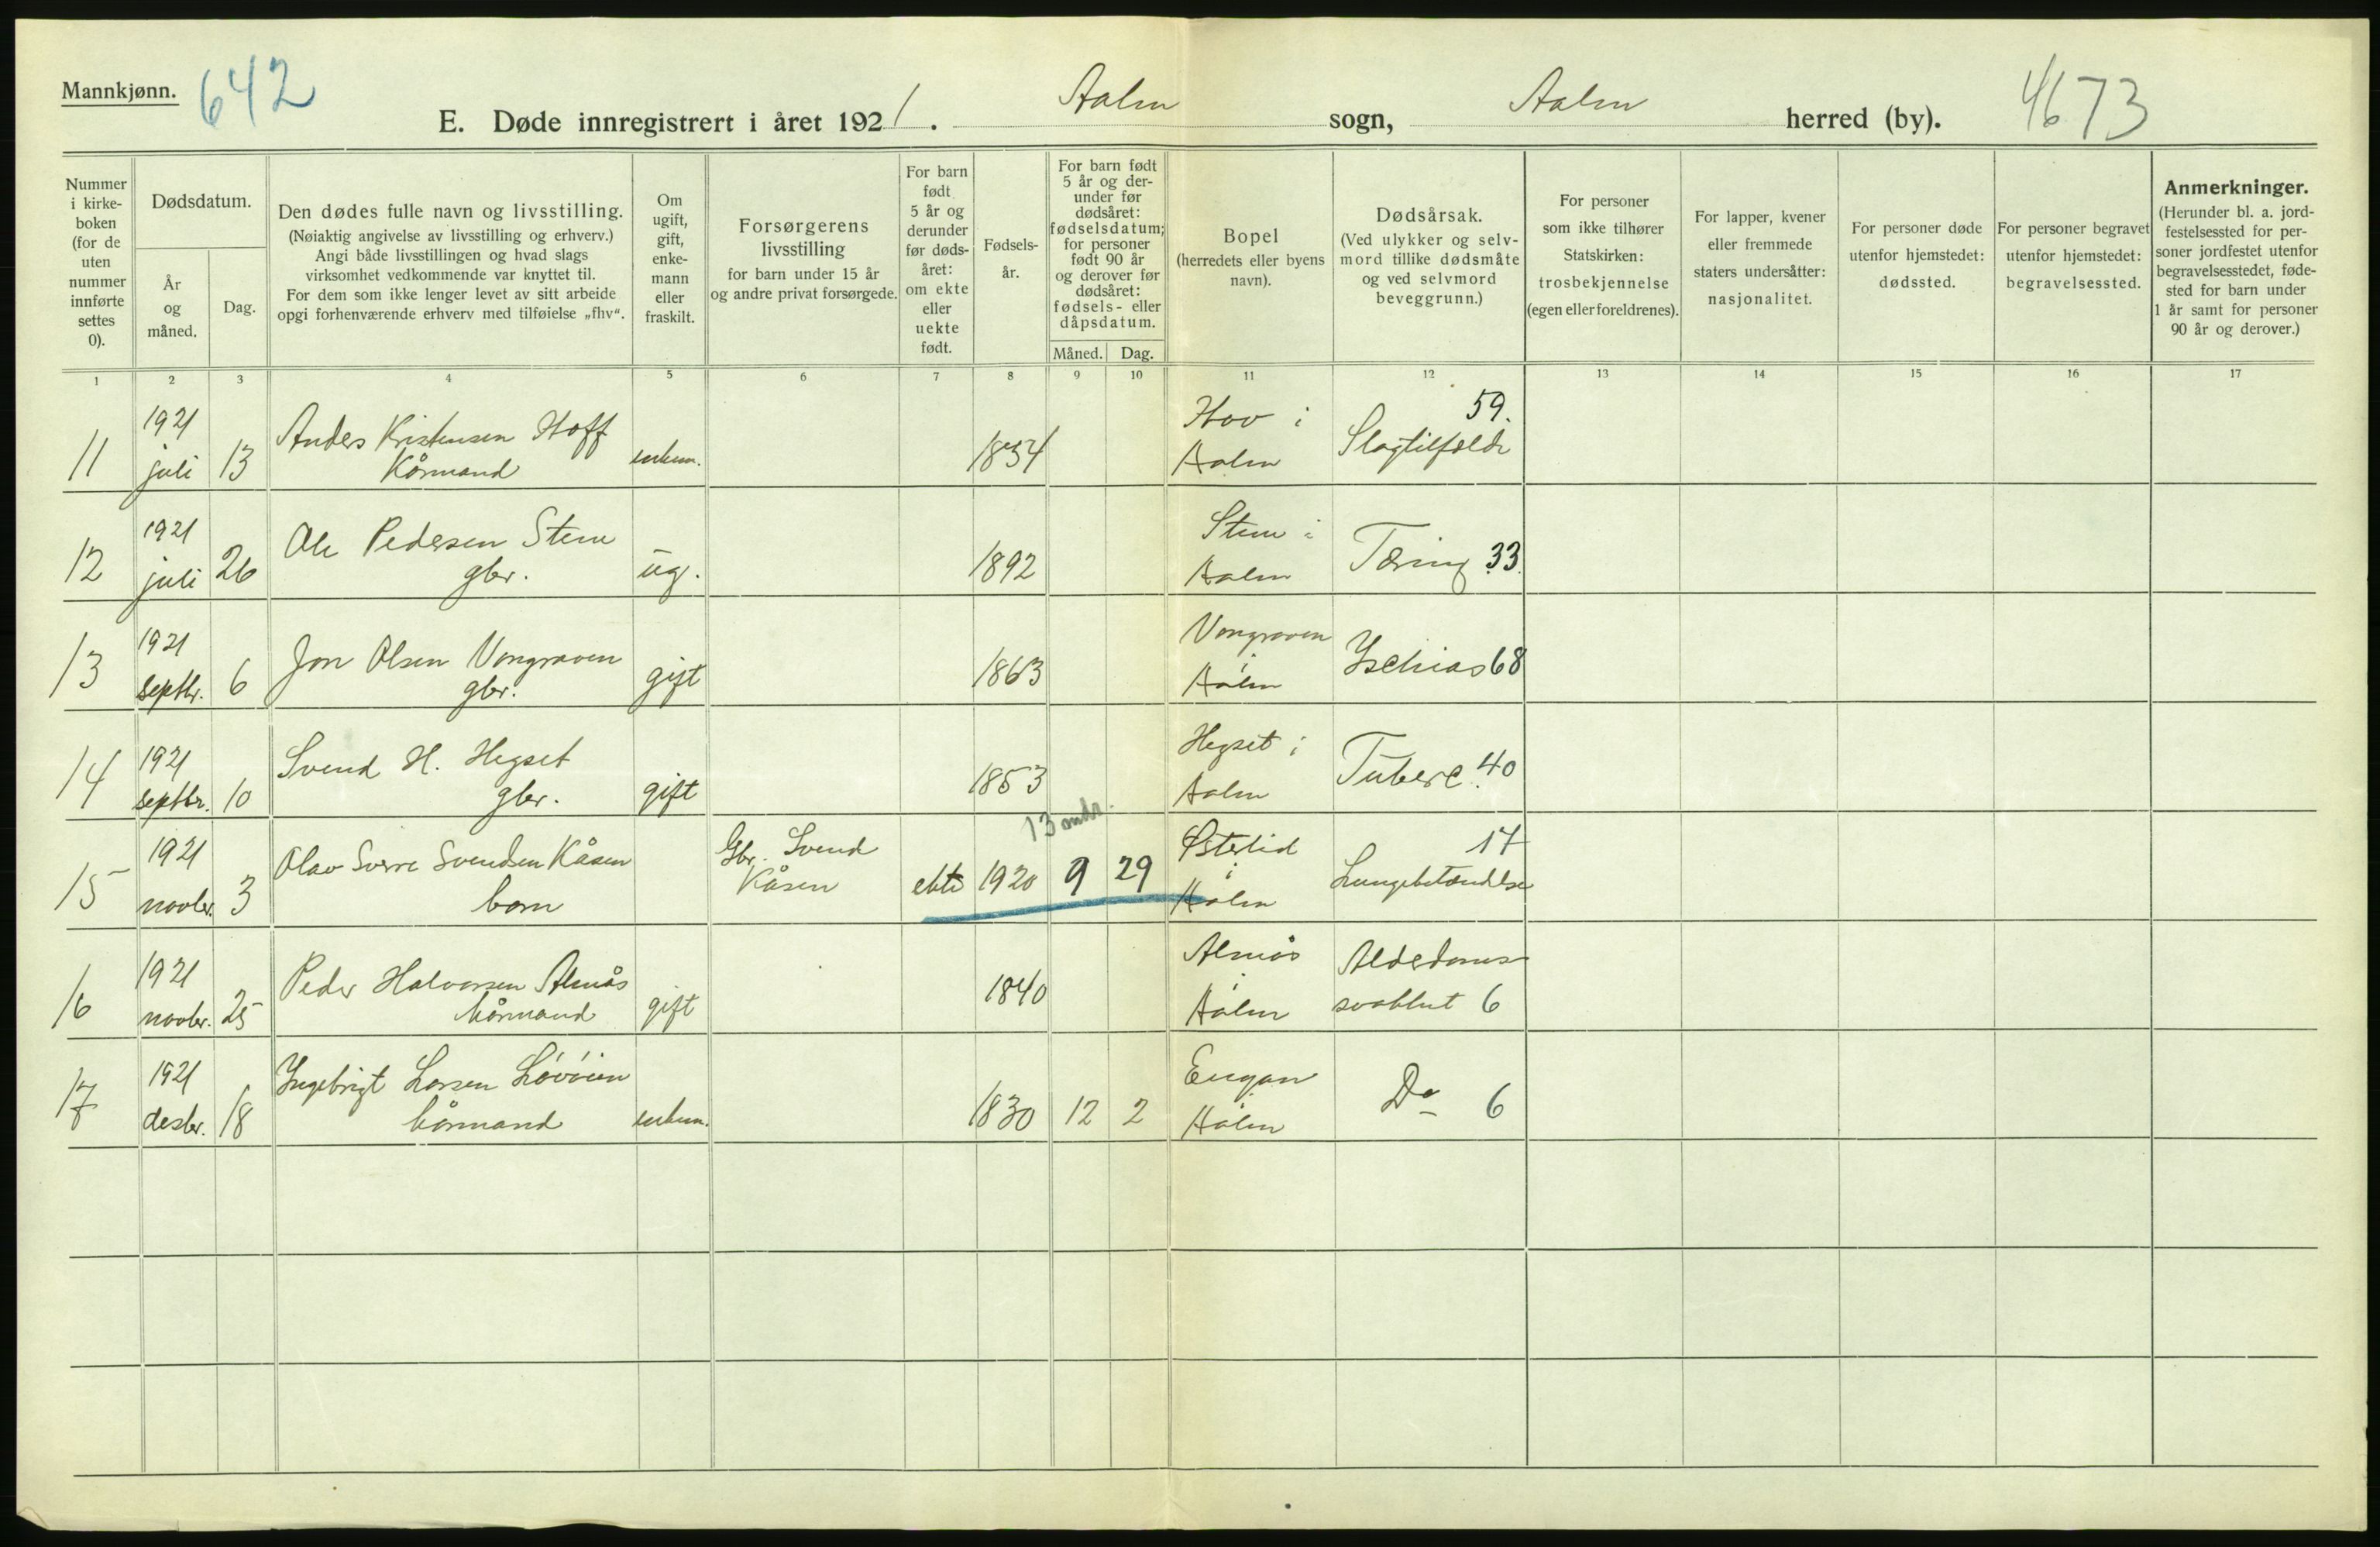 Mannkjønn.
642
E. Døde innregistrert i året 1921. Aalen sogn, Aalen herred (by).
4673
Nummer
i kirke-
boken
(for de
uten
nummer
innførte
settes
0).
Dødsdatum.
År
og
måned.
Dag.
Den dødes fulle navn og livsstilling.
(Nøiaktig angivelse av livsstilling og erhverv.)
Angi både livsstillingen og hvad slags
virksomhet vedkommende var knyttet til.
For dem som ikke lenger levet av sitt arbeide
opgi forhenværende erhverv med tilføielse „fhv“.
Om
ugift,
gift,
enke-
mann
eller
fraskilt.
Forsørgerens
livsstilling
for barn under 15 år
og andre privat forsørgede.
For barn
født
5 år og
derunder
før døds-
året:
om ekte
eller
uekte
født.
Fødsels-
år.
For barn født
5 år og der-
under før
dødsåret:
fødselsdatum;
for personer
født 90 år
og derover før
dødsåret:
fødsels- eller
dåpsdatum.
Måned. Dag.
Bopel
(herredets eller byens
navn).
Dødsårsak.
(Ved ulykker og selv-
mord tillike dødsmåte
og ved selvmord
beveggrunn.)
For personer
som ikke tilhører
Statskirken:
trosbekjennelse
(egen eller foreldrenes).
For lapper, kvener
eller fremmede
staters undersåtter:
nasjonalitet.
For personer døde
utenfor hjemstedet:
dødssted.
For personer begravet
utenfor hjemstedet:
begravelsessted.
Anmerkninger.
(Herunder bl. a. jord-
festelsessted for per-
soner jordfestet utenfor
begravelsesstedet, føde-
sted for barn under
1 år samt for personer
90 år og derover.)
1 2 3 4 5 6 7 8 9 10 11 12 13 14 15 16 17
1921 Anders Kristensen Hoff Hov i 59.
11 juli 13 Kårmand enkem. 1834 Aalen Slagtilfælde
1921 Ole Pedersen Stene Stene i
12 juli 26 gbr. ug. 1892 Aalen Tæring 33.
1921 Jon Olsen Vongraven Vongraven
13 septbr. 6 gbr. gift 1863 i Aalen Ischias 68
1921 Svend H. Hegset Hegset i
14 septbr. 10 gbr. gift 1853 Aalen Tuberc. 40
13 mdr.
1921 Olav Sverre Svendsen Kåsen Gbr. Svend Østerlid 17
15 novbr. 3 barn Kåsen ekte 1920 9 29 i Aalen Lungebetændelse
1921 Peder Halvorsen Almås Almås Alderdoms
16 novbr. 25 kårmand gift 1840 i Aalen svakhet 6
1921 Ingebrigt Larsen Løvøien Engan
17 desbr. 18 kårmand enkem. 1830 12 2 Aalen Do 6